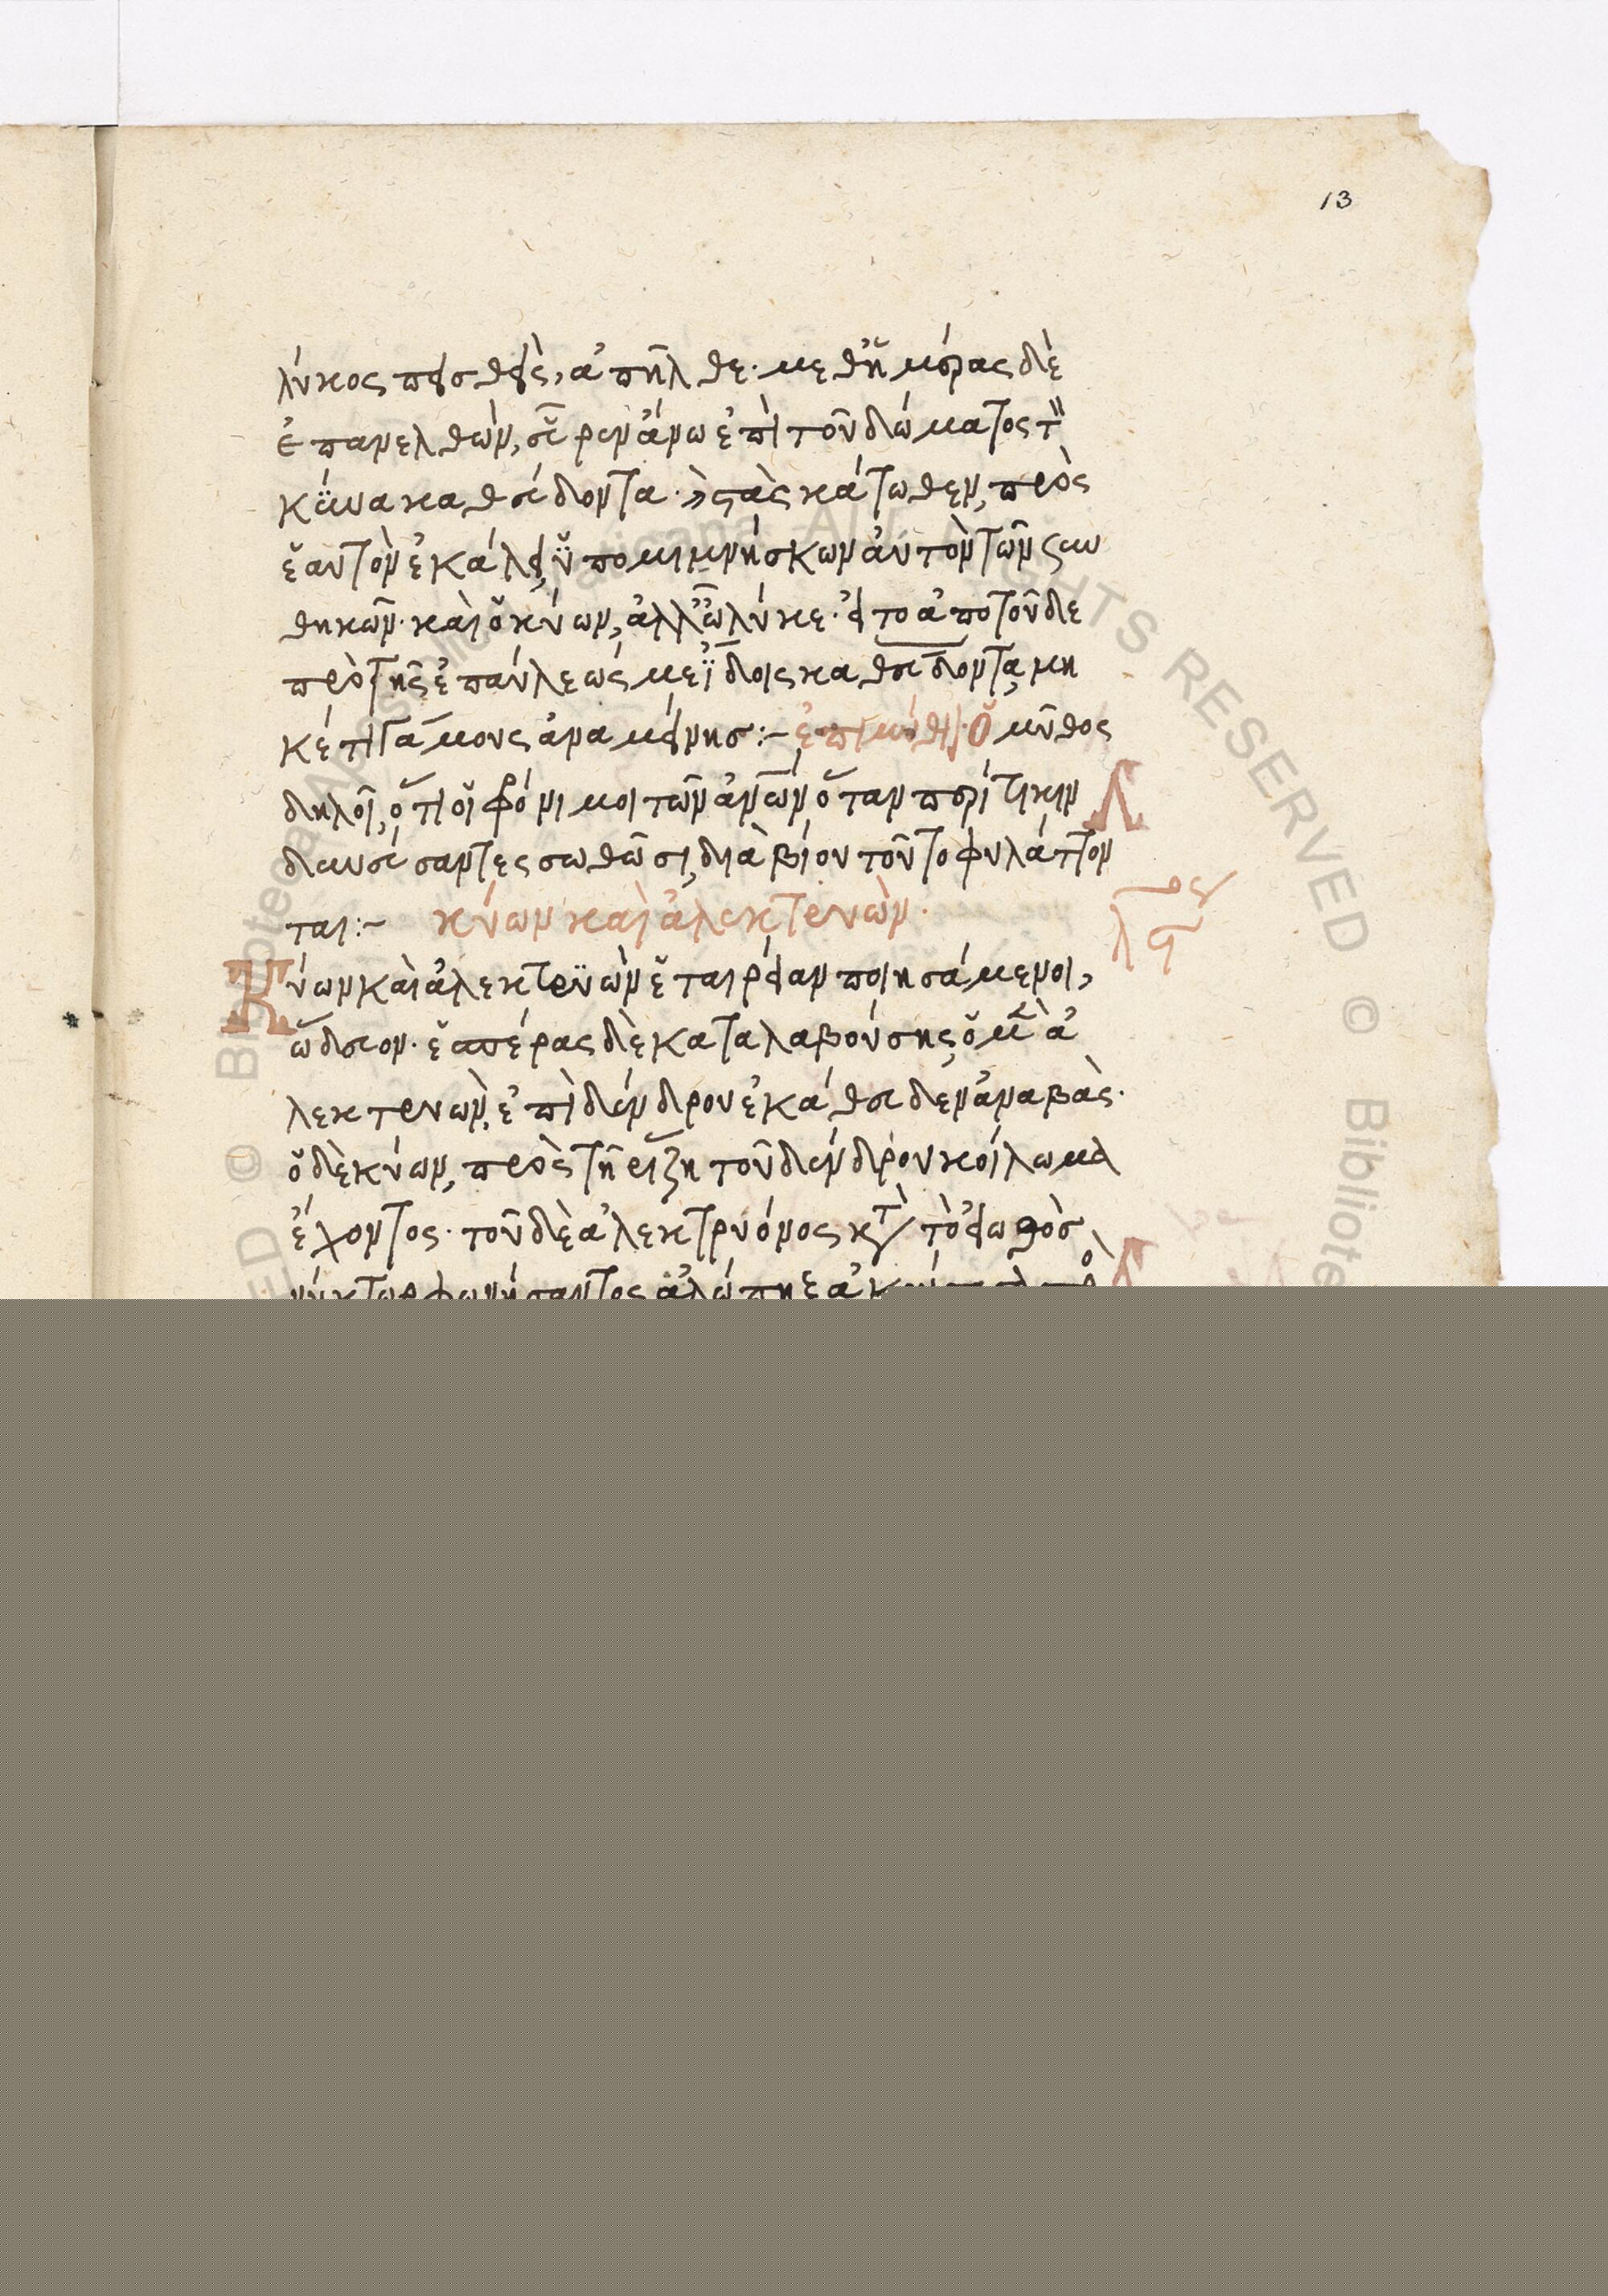 13
λύκος πεισθεὶς, ἀπῆλθε· μεθ' ἡμέρας δὲ
ἐπανελθὼν, εὗρεν ἄνω ἐπὶ τοῦ δώματος τὸν
κύνα καθεύδοντα· καὶ στὰς κάτωθεν, πρὸς
ἑαυτὸν ἐκάλει, ὑπομιμνήσκων αὐτὸν τῶν συν
θηκῶν· καὶ ὁ κύων, ἀλλ' ὦ λύκε· εἰ το ἀπὸ τοῦδε
πρὸ τῆς ἐπαύλεώς με ἴδοις καθεύδοντα, μη
κέτι γάμους ἀναμείνης :- ἐπιμύθι· Ὁ μῦθος
δηλοῖ, ὅτι οἱ φρόνιμοι τῶν ἀνων ὅταν περί τι κιν
δυνεύσαντες σωθῶσι, διὰ βίου τοῦτο φυλάττον
ται :- κύων καὶ ἀλεκτρυὼν·
Κύων καὶ ἀλεκτρυὼν ἑταιρείαν ποιησάμενοι,
ὥδευον· ἑσπέρας δὲ καταλαβούσης, ὁ μὲν ἀ
λεκτρυὼν, ἐπὶ δένδρου ἐκάθευδεν ἀναβὰς·
ὁ δὲ κύων, πρὸς τῆ ῥίζη τοῦ δένδρου κοίλωμα
ἔχοντος· τοῦ δὲ ἀλεκτρυόνος κτ τὸ εἰωθὸσ
νύκτωρ φωνήσαντος ἀλώπηξ